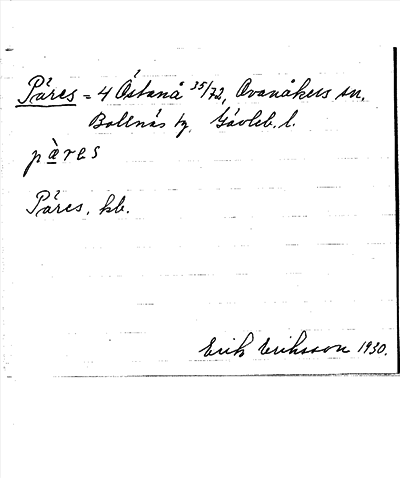 Päres = 4 Östanå 35/72, Ovanåkers sn,
Bollnäs tg. Gävleb. l.
pàres
Päres, kb.
Erik Eriksson 1930.